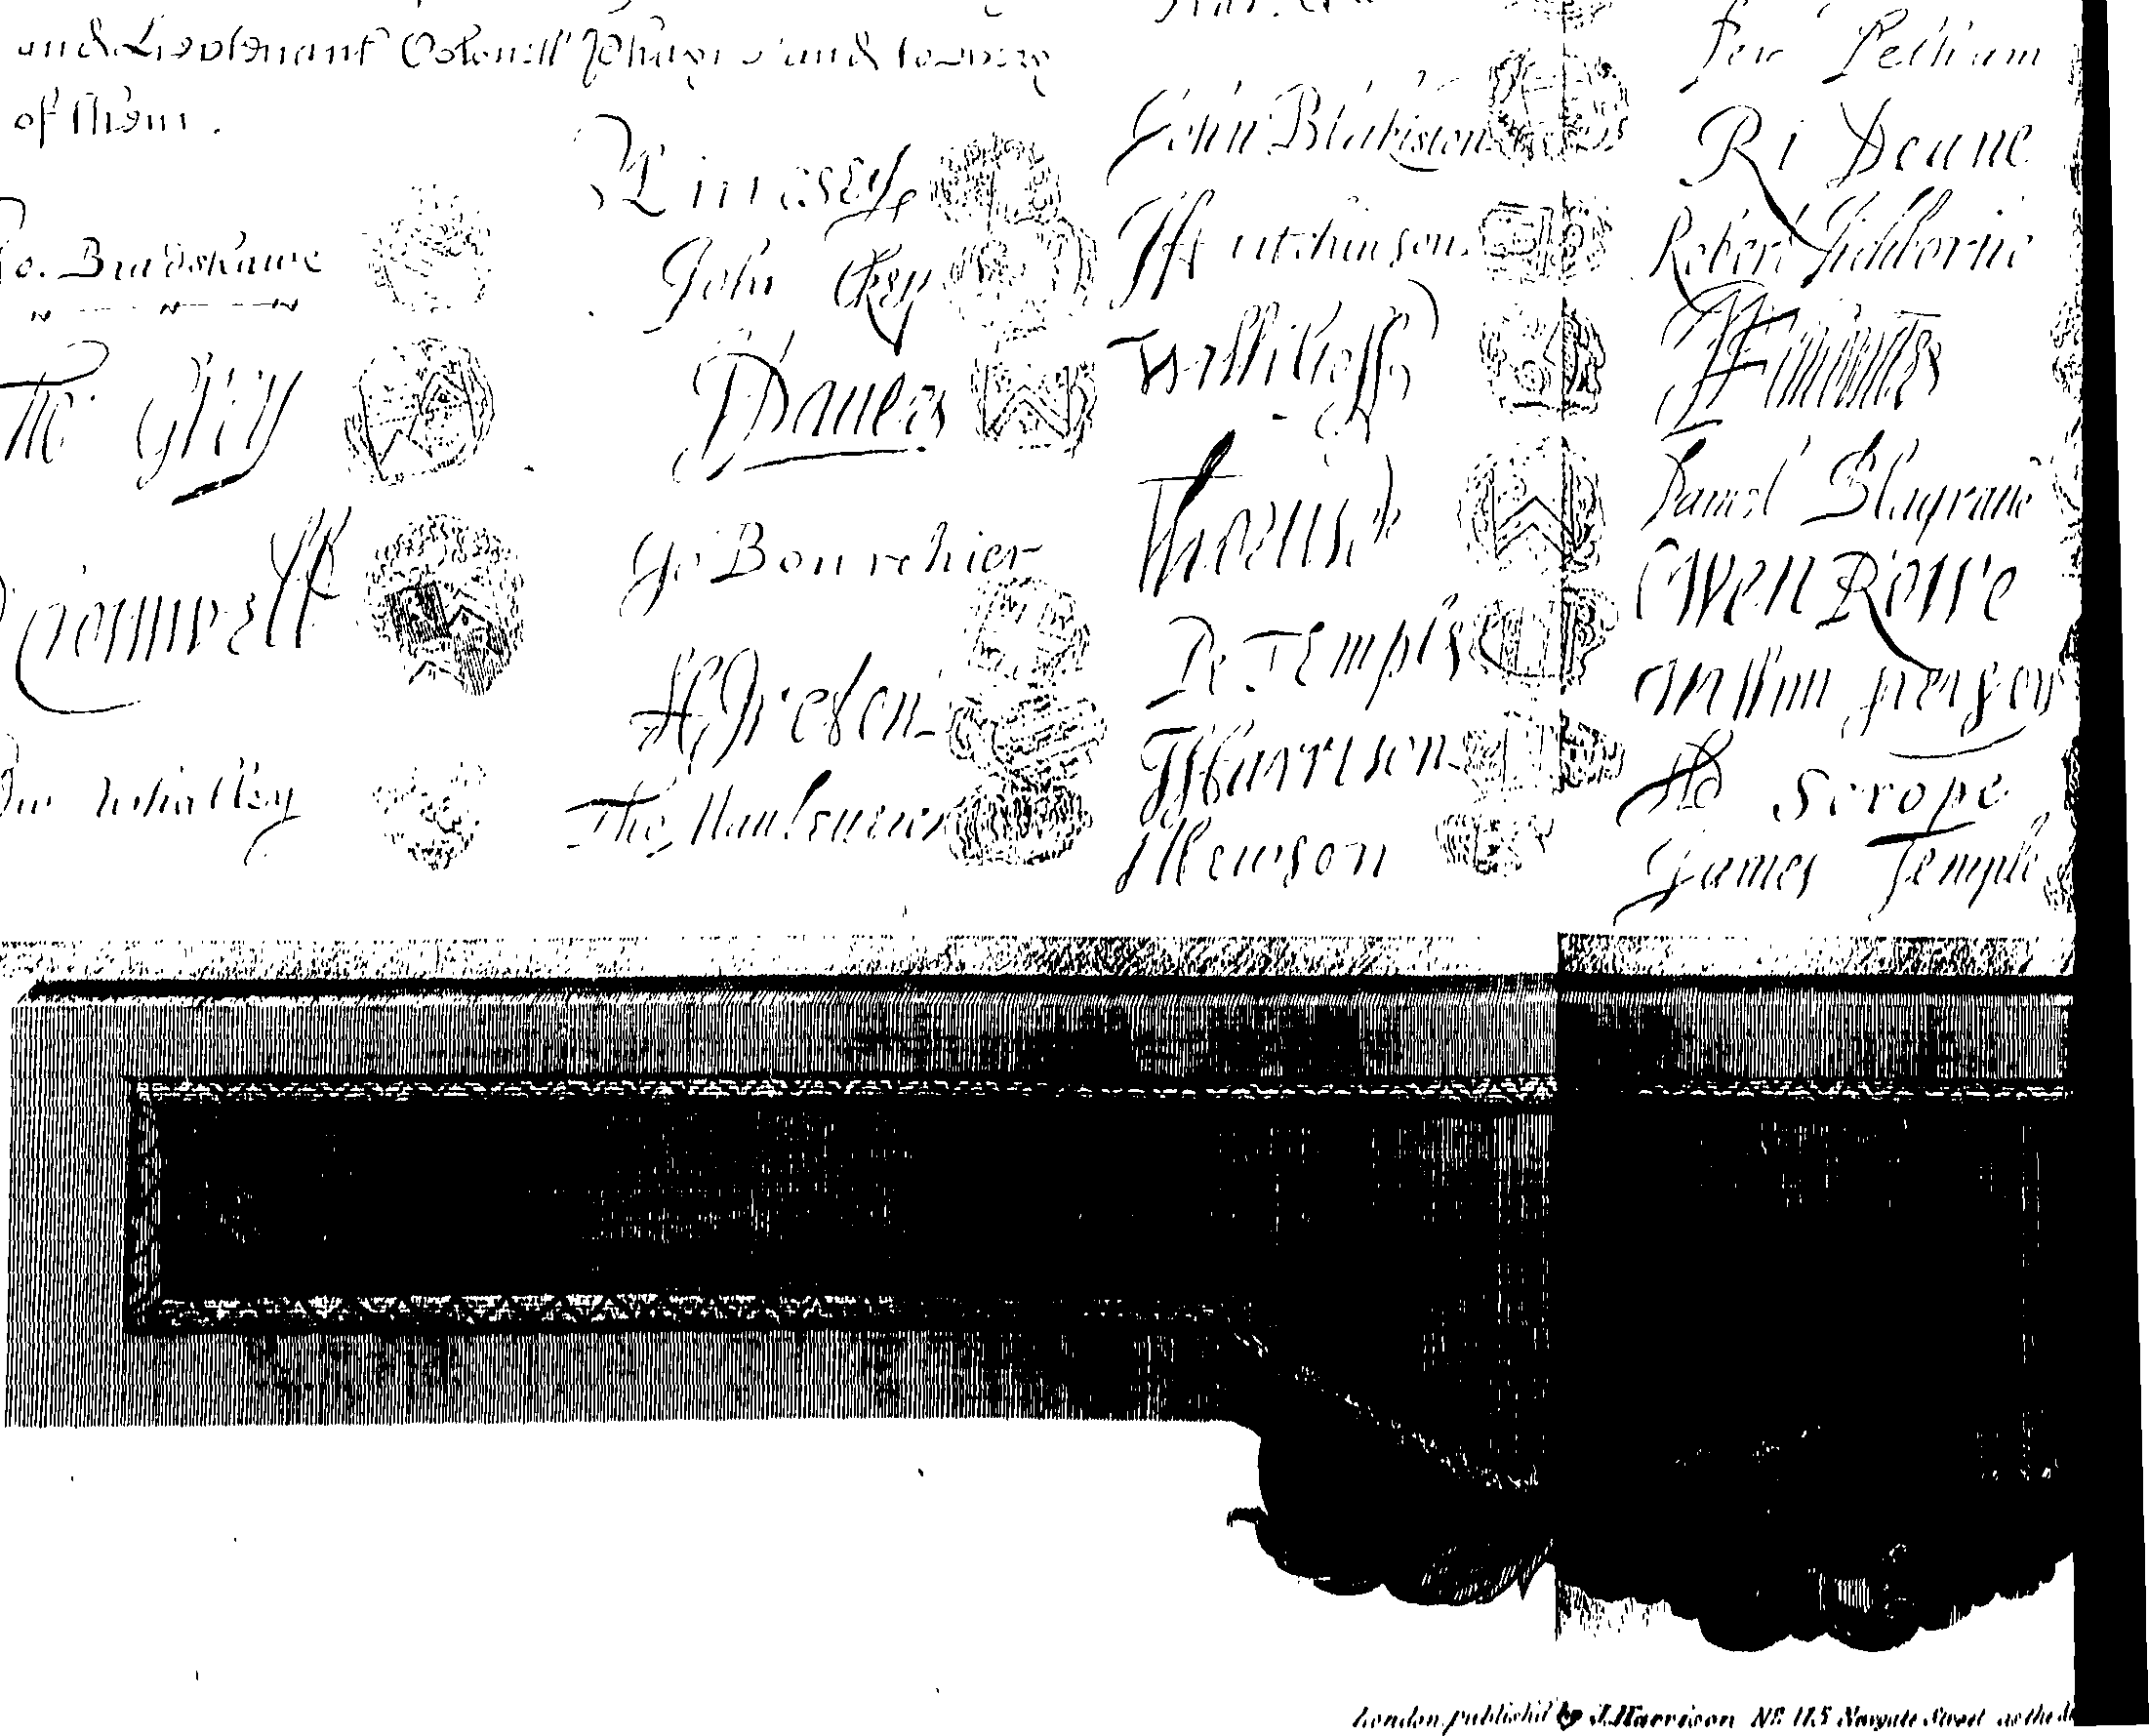 and Lieutenant Colonell Phayre and to every
of them.
Jo. Bradshawe
Tho Grey
O Cromwell
Edw Whalley
M Livesey
John Okey
J Danvers
Jo Bourchier
H Ireton
Tho Mauleverer
John Blakiston
J Hutchinson
Willi Goff
Tho Pride
Pe Temple
T Harrison
J Hewson
Per Pelham
Ri Deane
Robert Tichborne
H Edwardes
Daniel Blagrave
Owen Rowe
William Perfoy
Ad Scrope
James Temple
London, publish'd by J. Harrison No. 115 Newgate Street as the